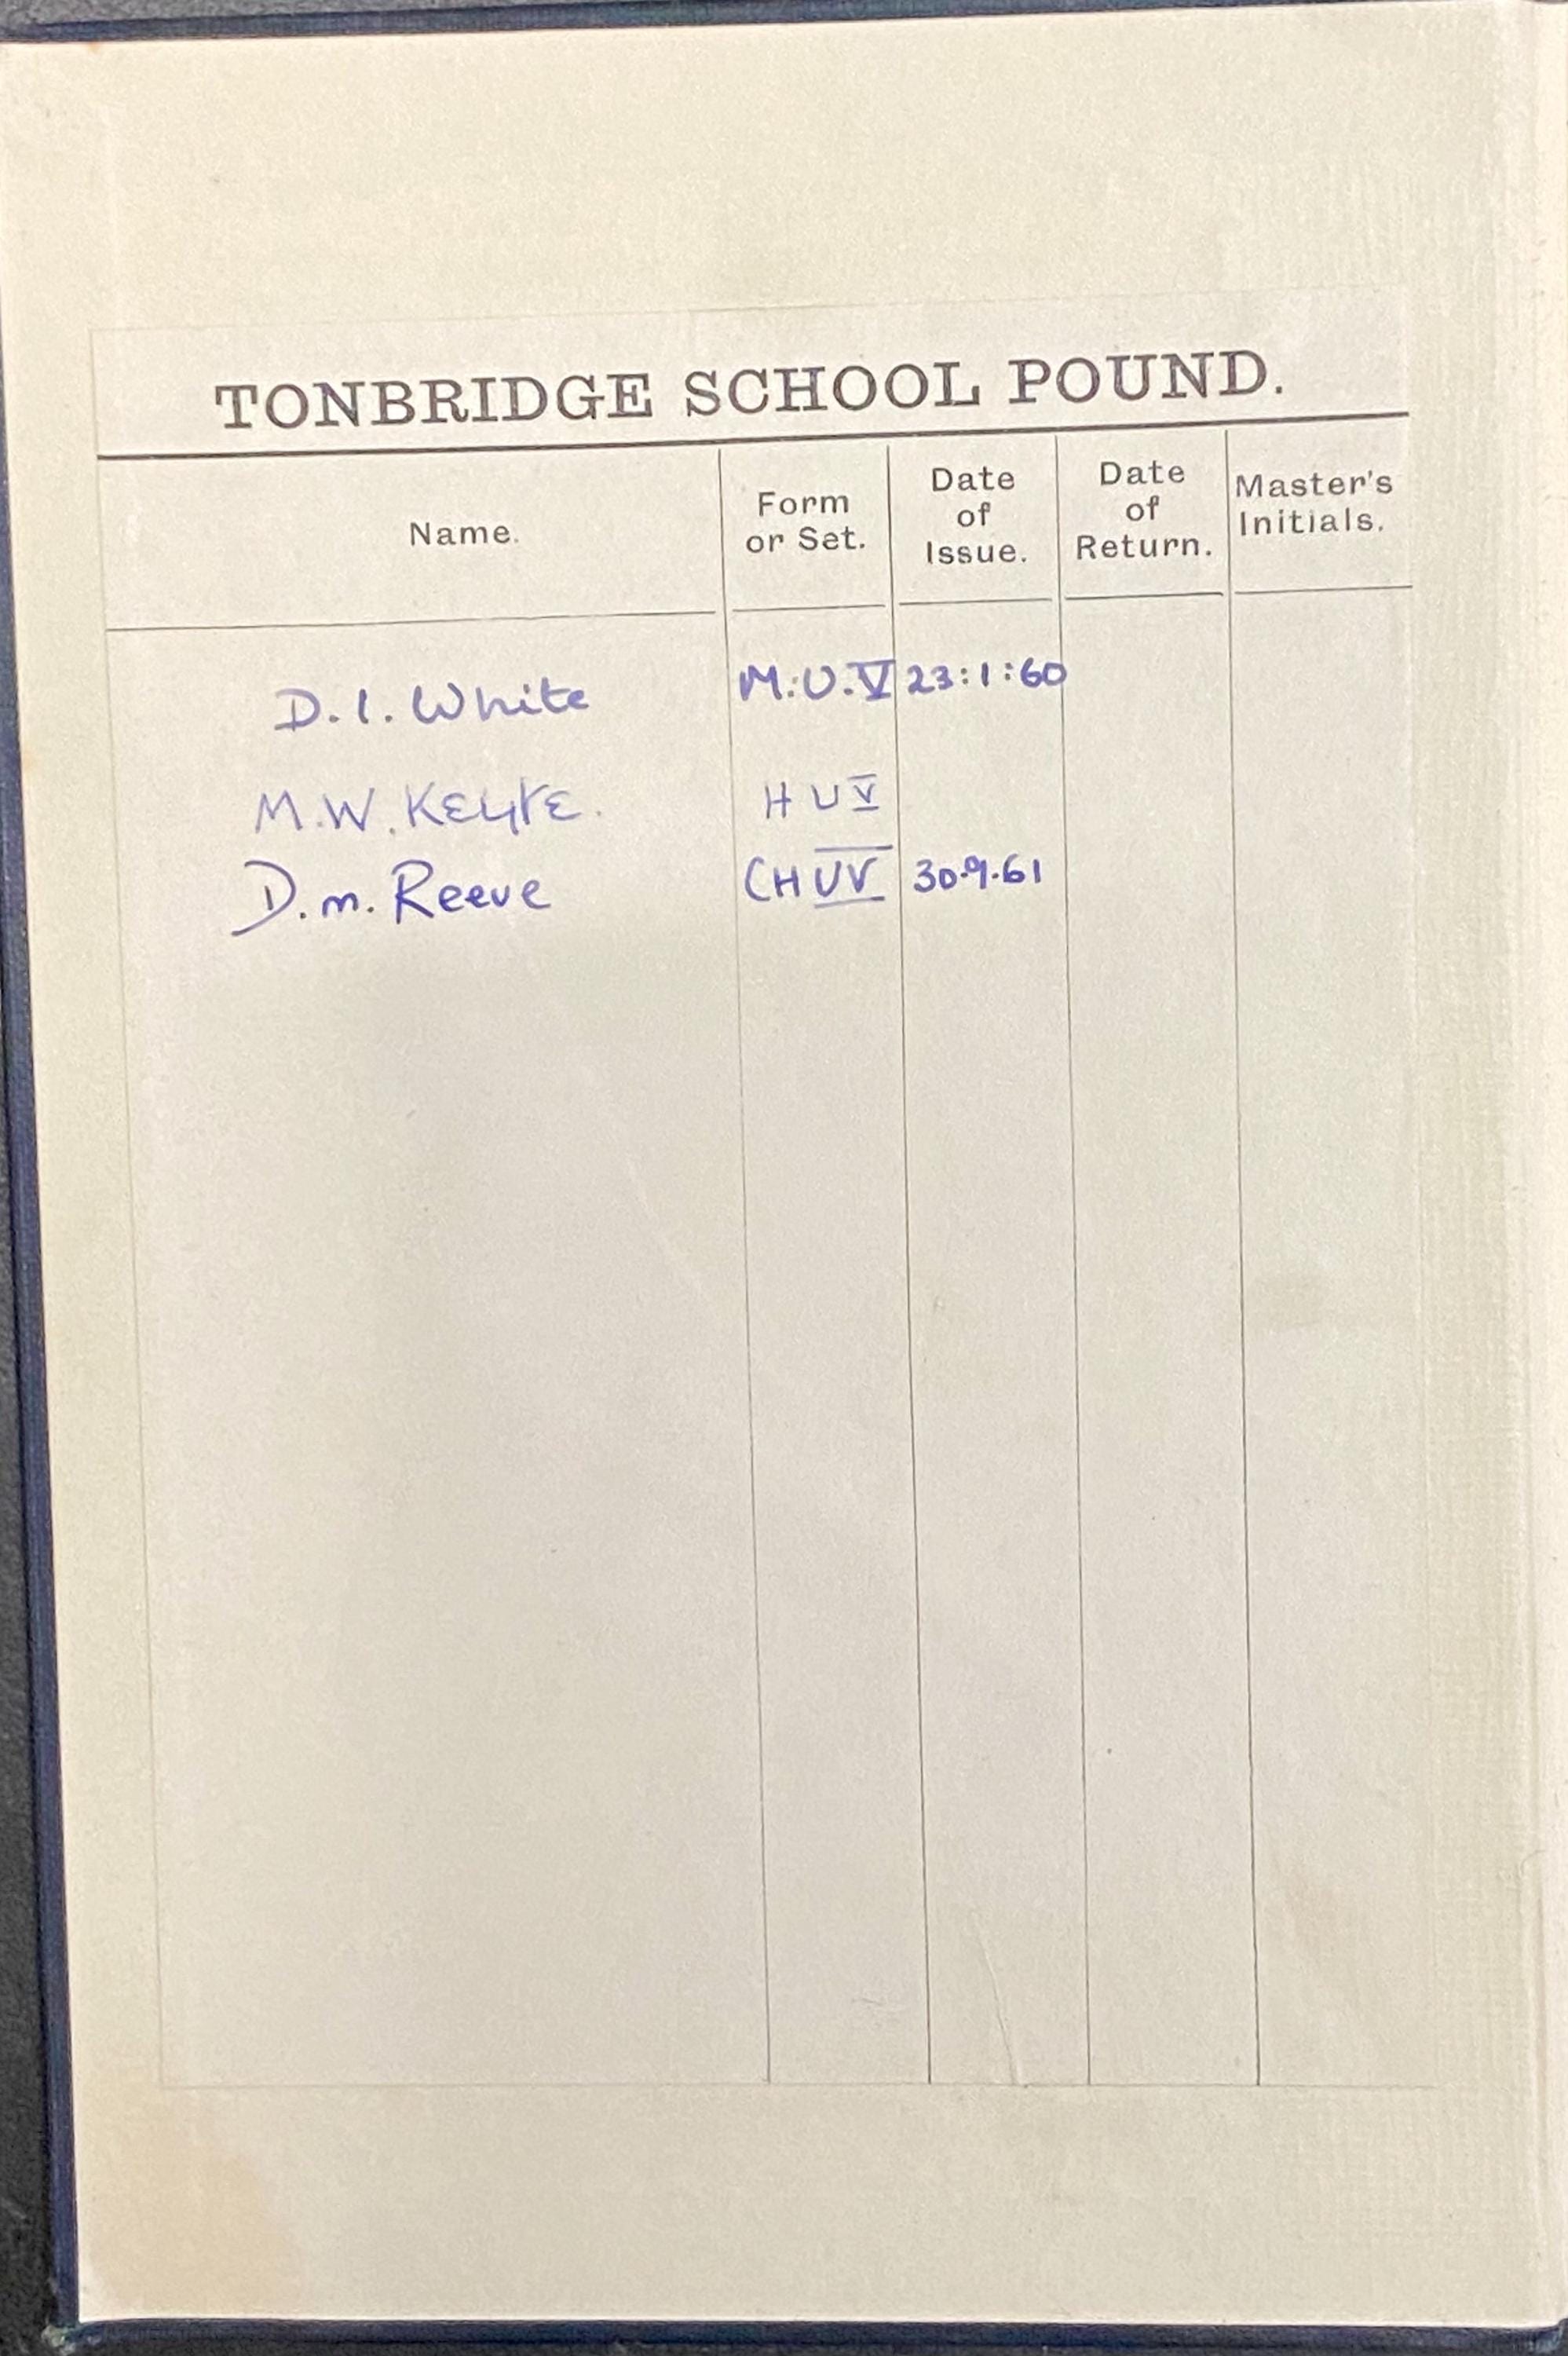 TONBRIDGE SCHOOL POUND.
Name. Form or Set. Date of Issue. Date of Return. Master's Initials.
D. I. White M.U.V 23:1:60
M.W. Keyte. H U V
D.m. Reeve CH UV 30.9.61